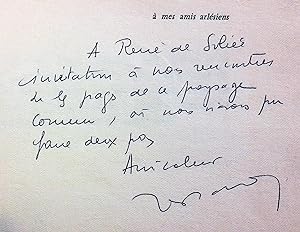 à mes amis arlésiens
A René de Solier
invitation à nos rencontres
de ce paysage
commun, où nous
faire deux pas
Amicalement